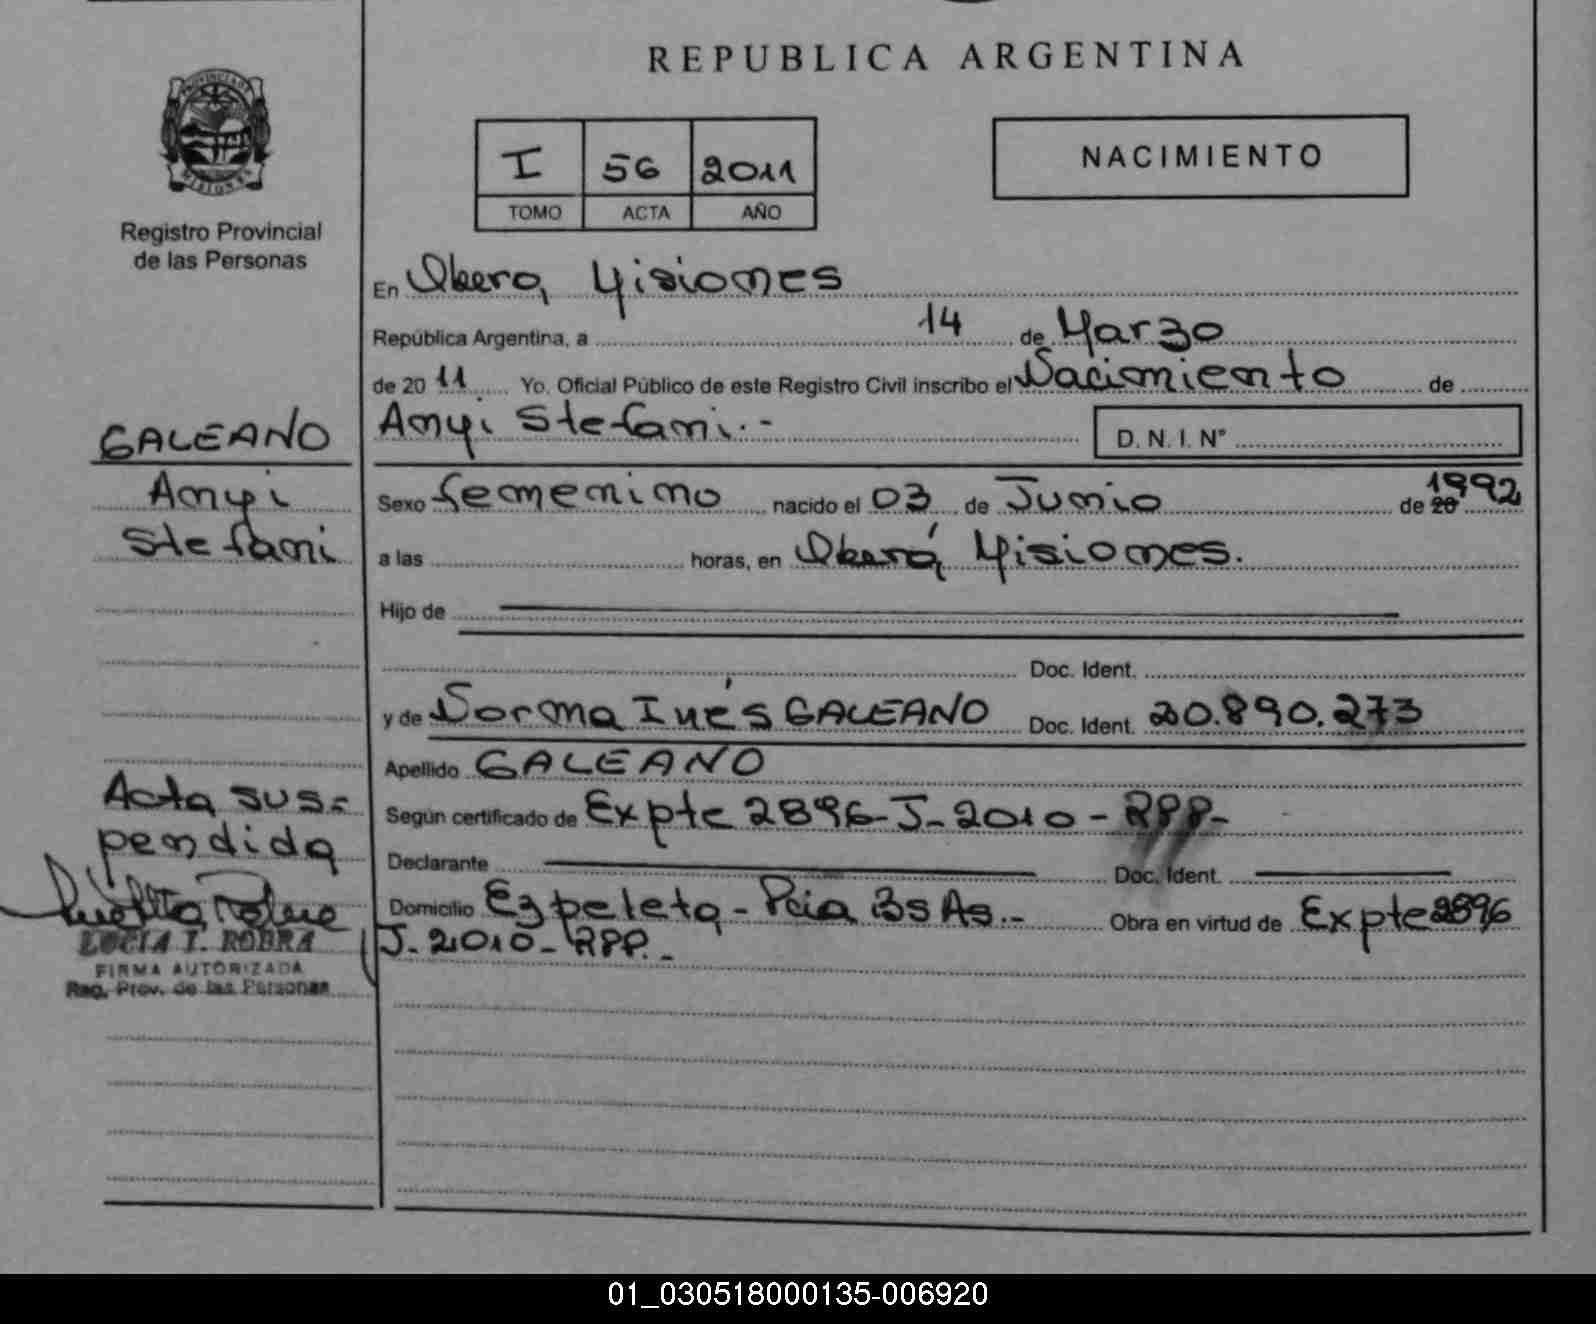 REPUBLICA ARGENTINA
I 56 2011
TOMO ACTA AÑO
NACIMIENTO
PROVINCIA DE
MISIONES
Registro Provincial
de las Personas
En Obera, Misiones
República Argentina, a 14 de Marzo
de 2011 Yo. Oficial Público de este Registro Civil inscribo el Nacimiento de
Anyi Stefani.-
D. N. I. Nº
GALEANO
Anyi
Stefani
Sexo femenino nacido el 03 de Junio de 20 1992
a las horas, en Oberá, Misiones.
Hijo de
Doc. Ident.
y de Norma Inés GALEANO Doc. Ident. 20.890.273
Apellido GALEANO
Según certificado de Expte 2896-J-2010-RPP-
Declarante Doc. Ident.
Domicilio Ezpeleta - Pcia Bs As.- Obra en virtud de Expte 2896
J-2010-RPP.-
Acta sus=
pendida
LUCIA I. ROBRA
FIRMA AUTORIZADA
Reg. Prov. de las Personas
01_030518000135-006920